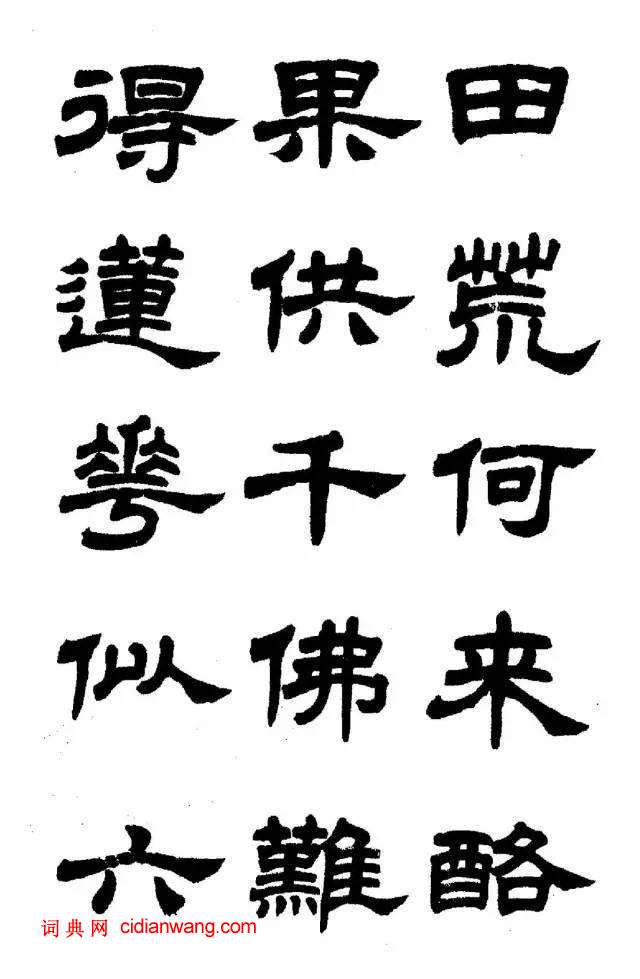 田荒何来酪
果供千佛難
得蓮花似六
词典网 cidianwang.com